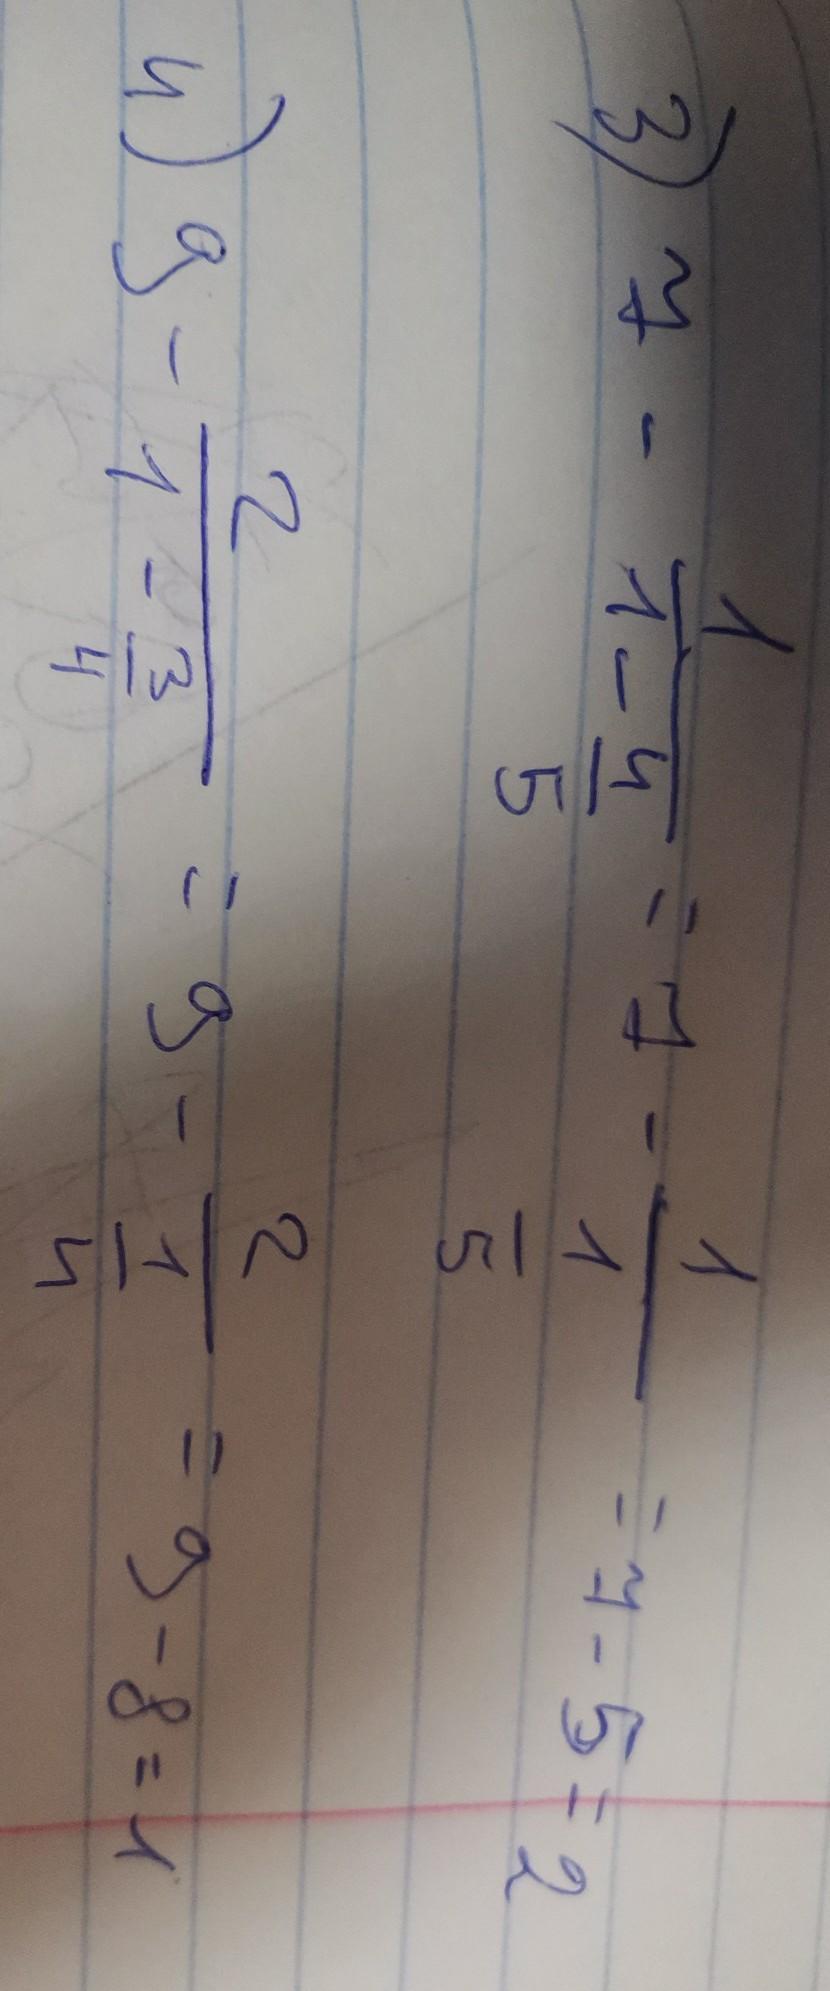 3) 7 - 1/(1 - 4/5) = 7 - 1/(1/5) = 7 - 5 = 2
4) 9 - 2/(1 - 3/4) = 9 - 2/(1/4) = 9 - 8 = 1